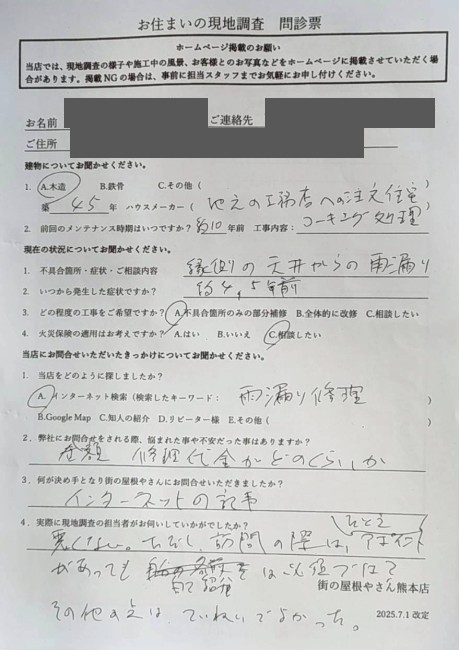 お住まいの現地調査　問診票
ホームページ掲載のお願い
当店では、現地調査の様子や施工中の風景、お客様とのお写真などをホームページに掲載させていただく場
合があります。掲載NGの場合は、事前に担当スタッフまでお気軽にお申し付けください。
お名前　ご連絡先
ご住所
建物についてお聞かせください。
1. A.木造　B.鉄骨　C.その他（　）
築 45 年　ハウスメーカー（地元の工務店への注文住宅）
2. 前回のメンテナンス時期はいつですか？ 約10 年前　工事内容：コーキング処理
現在の状況についてお聞かせください。
1. 不具合箇所・症状・ご相談内容　縁側の天井からの雨漏り
2. いつから発生した症状ですか？　約4,5年前
3. どの程度の工事をご希望ですか？ A.不具合箇所のみの部分補修 B.全体的に改修 C.相談したい
4. 火災保険の適用はお考えですか？ A.はい　B.いいえ　C.相談したい
当店にお問合せいただいたきっかけについてお聞かせください。
1. 当店をどのように探しましたか？
A. インターネット検索（検索したキーワード：　雨漏り修理　）
B.Google Map　C.知人の紹介　D.リピーター様　E.その他（　）
2. 弊社にお問合せをされる際、悩まれた事や不安だった事はありますか？
金額　修理代金がどのくらいか
3. 何が決め手となり街の屋根やさんにお問合せいただきましたか？
インターネットの記事
4. 実際に現地調査の担当者がお伺いしていかがでしたか？
悪くない。ただし、訪問の際は、たとえアポイント
があっても 自己紹介は必須では？
街の屋根やさん熊本店
その他の点は、ていねいでよかった。
2025.7.1 改定